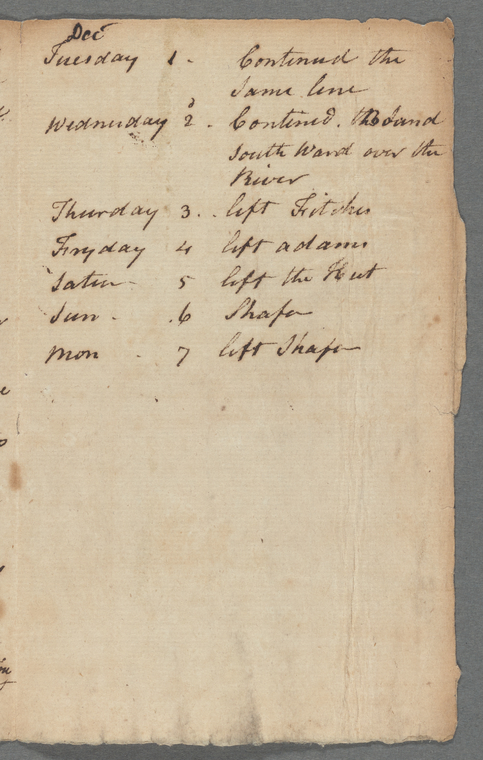 Decr
Tuesday 1 - Continued the
Same line
Wednesday 2d. Contined. the Band
South Ward over the
River
Thursday 3. . left Fritches
Fryday 4 left adams
Satur - 5 left the Hut
Sun - .6 Shafer
Mon - 7 left Shafer